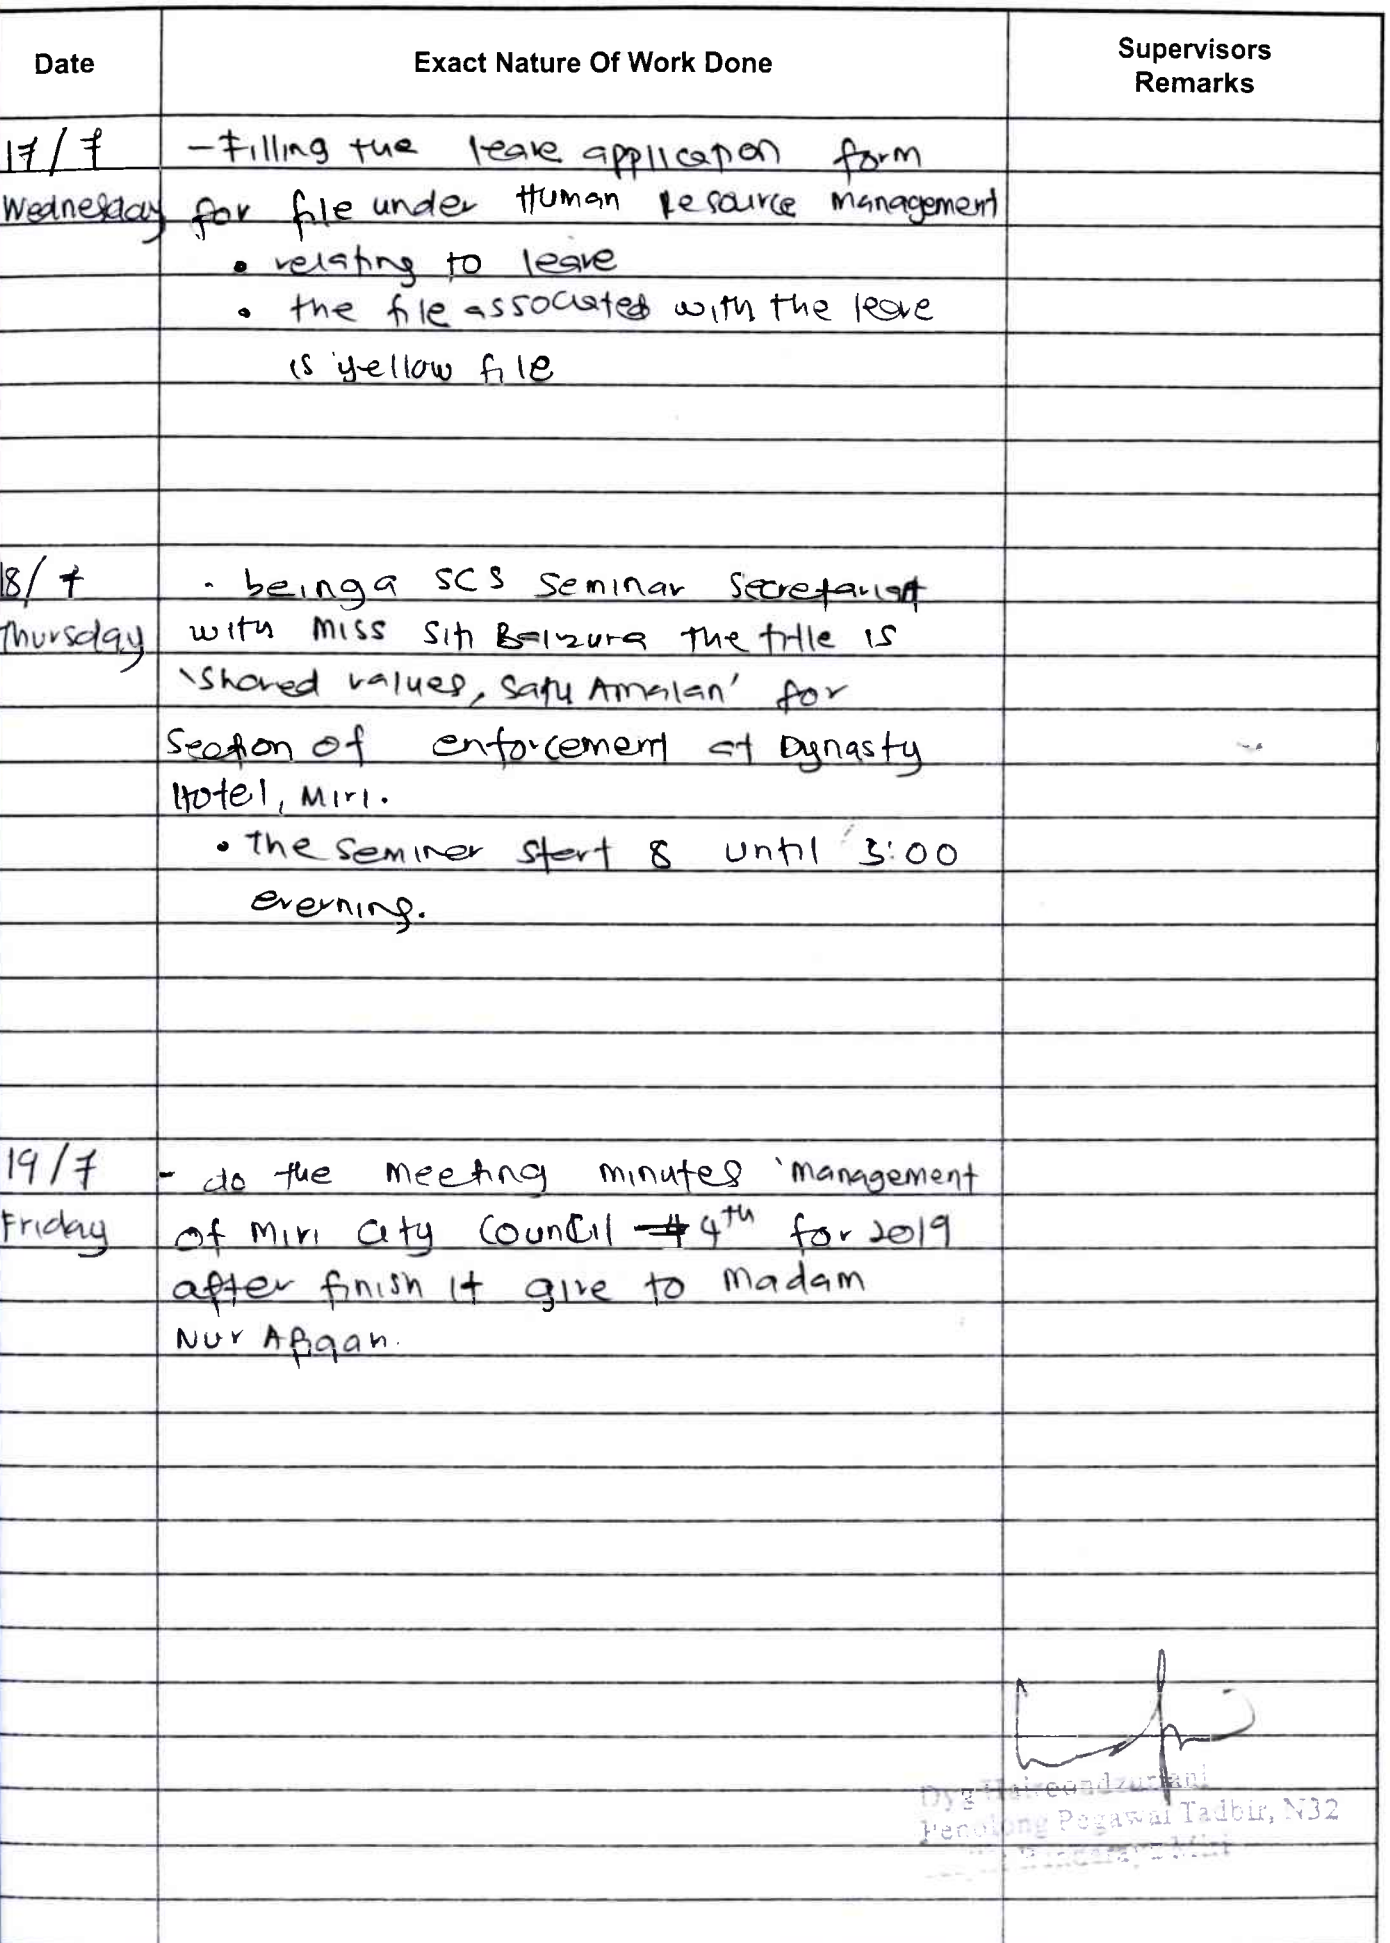 Date Exact Nature Of Work Done Supervisors
Remarks
17/7 - Filling the leave application form
Wednesday for file under Human Resource Management
• relating to leave
• the file associated with the leave
is yellow file
18/7 - being a SCS Seminar Secretariat
Thursday with Miss Siti Baizura the title is
'Shared values, Satu Amalan' for
Section of enforcement at Dynasty
Hotel, Miri.
• the seminer start 8 until 5:00
everning.
19/7 - do the meeting minutes 'management
Friday of Miri City Council 4th for 2019
after finish it give to Madam
Nur Afiqah.
Dyg
Penolong Pegawai Tadbir, N32
Miri